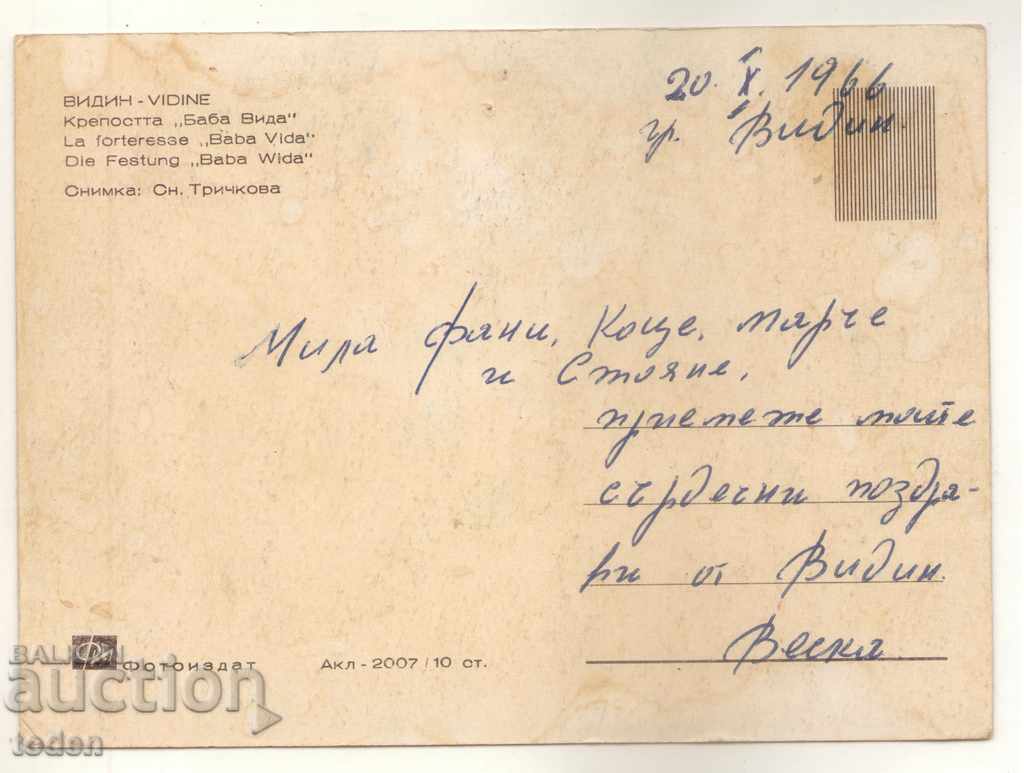 ВИДИН - VIDINE
Крепостта „Баба Вида"
La forteresse „Baba Vida"
Die Festung „Baba Wida"
Снимка: Сн. Тричкова
20. X. 1966
гр. Видин.
Мила Фани, Коце, Марче
и Стояне,
приемете моите
сърдечни поздра-
ви от Видин.
Веска.
Фотоиздат
Акл - 2007 / 10 ст.
BALKAN
auction
toden